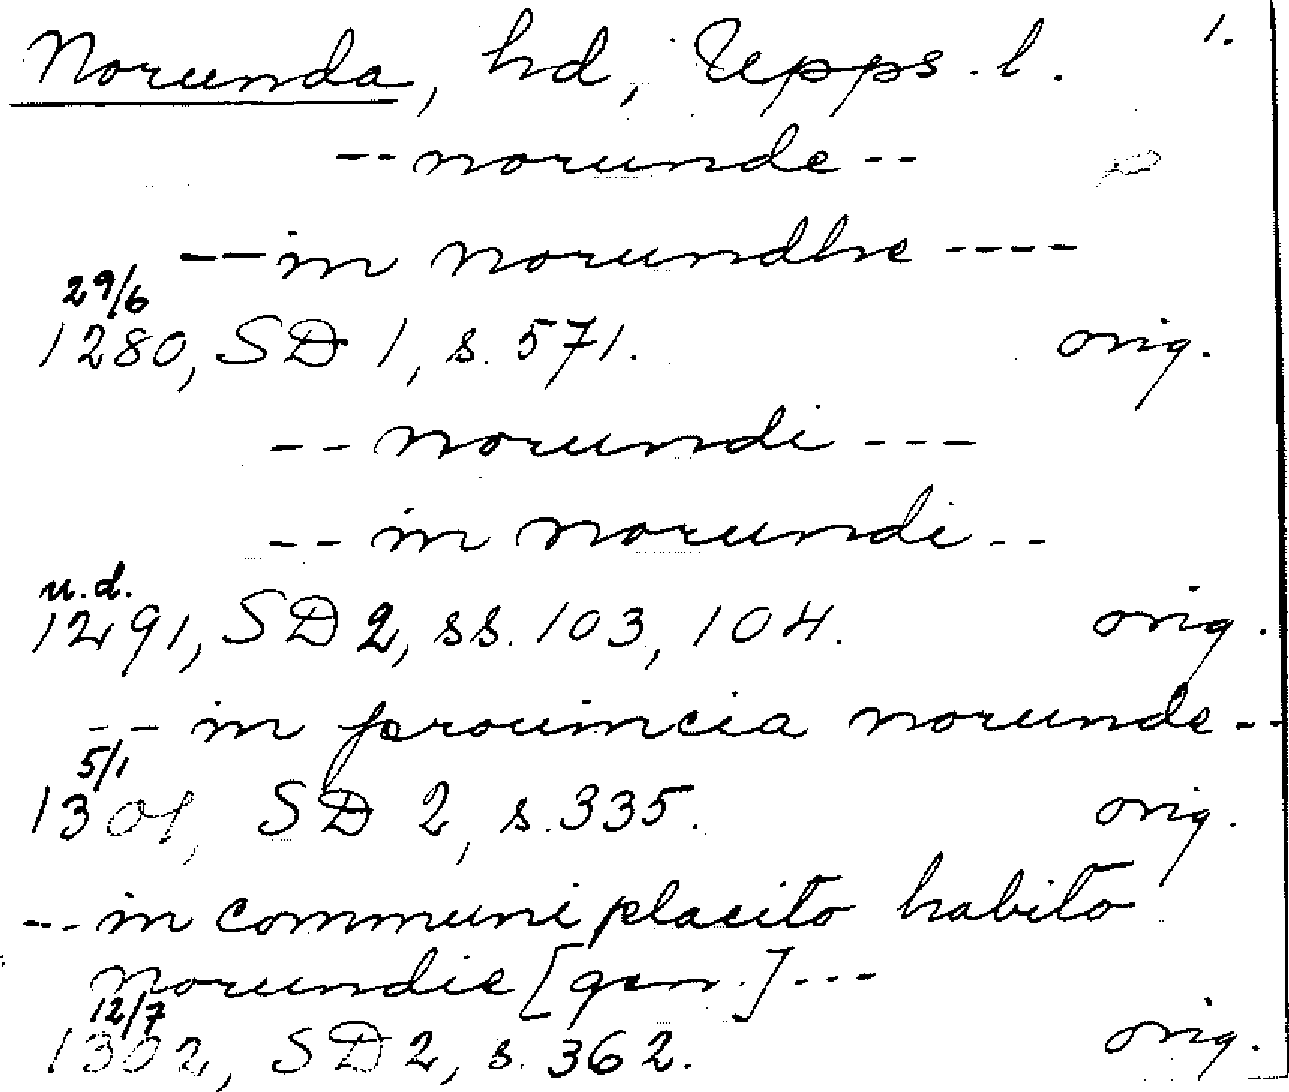 Norunda, hd, Upps. l. 1.
-- norunde --
-- in norundhe ----
29/6
1280, SD 1, s. 571. orig.
-- norundi ---
-- in norundi --
u.d.
1291, SD 2, ss. 103, 104. orig.
-- in prouincia norunde --
5/1
1301, SD 2, s. 335. orig.
-- in communi placito habito
norundie [gen.] ---
12/7
1302, SD 2, s. 362. orig.